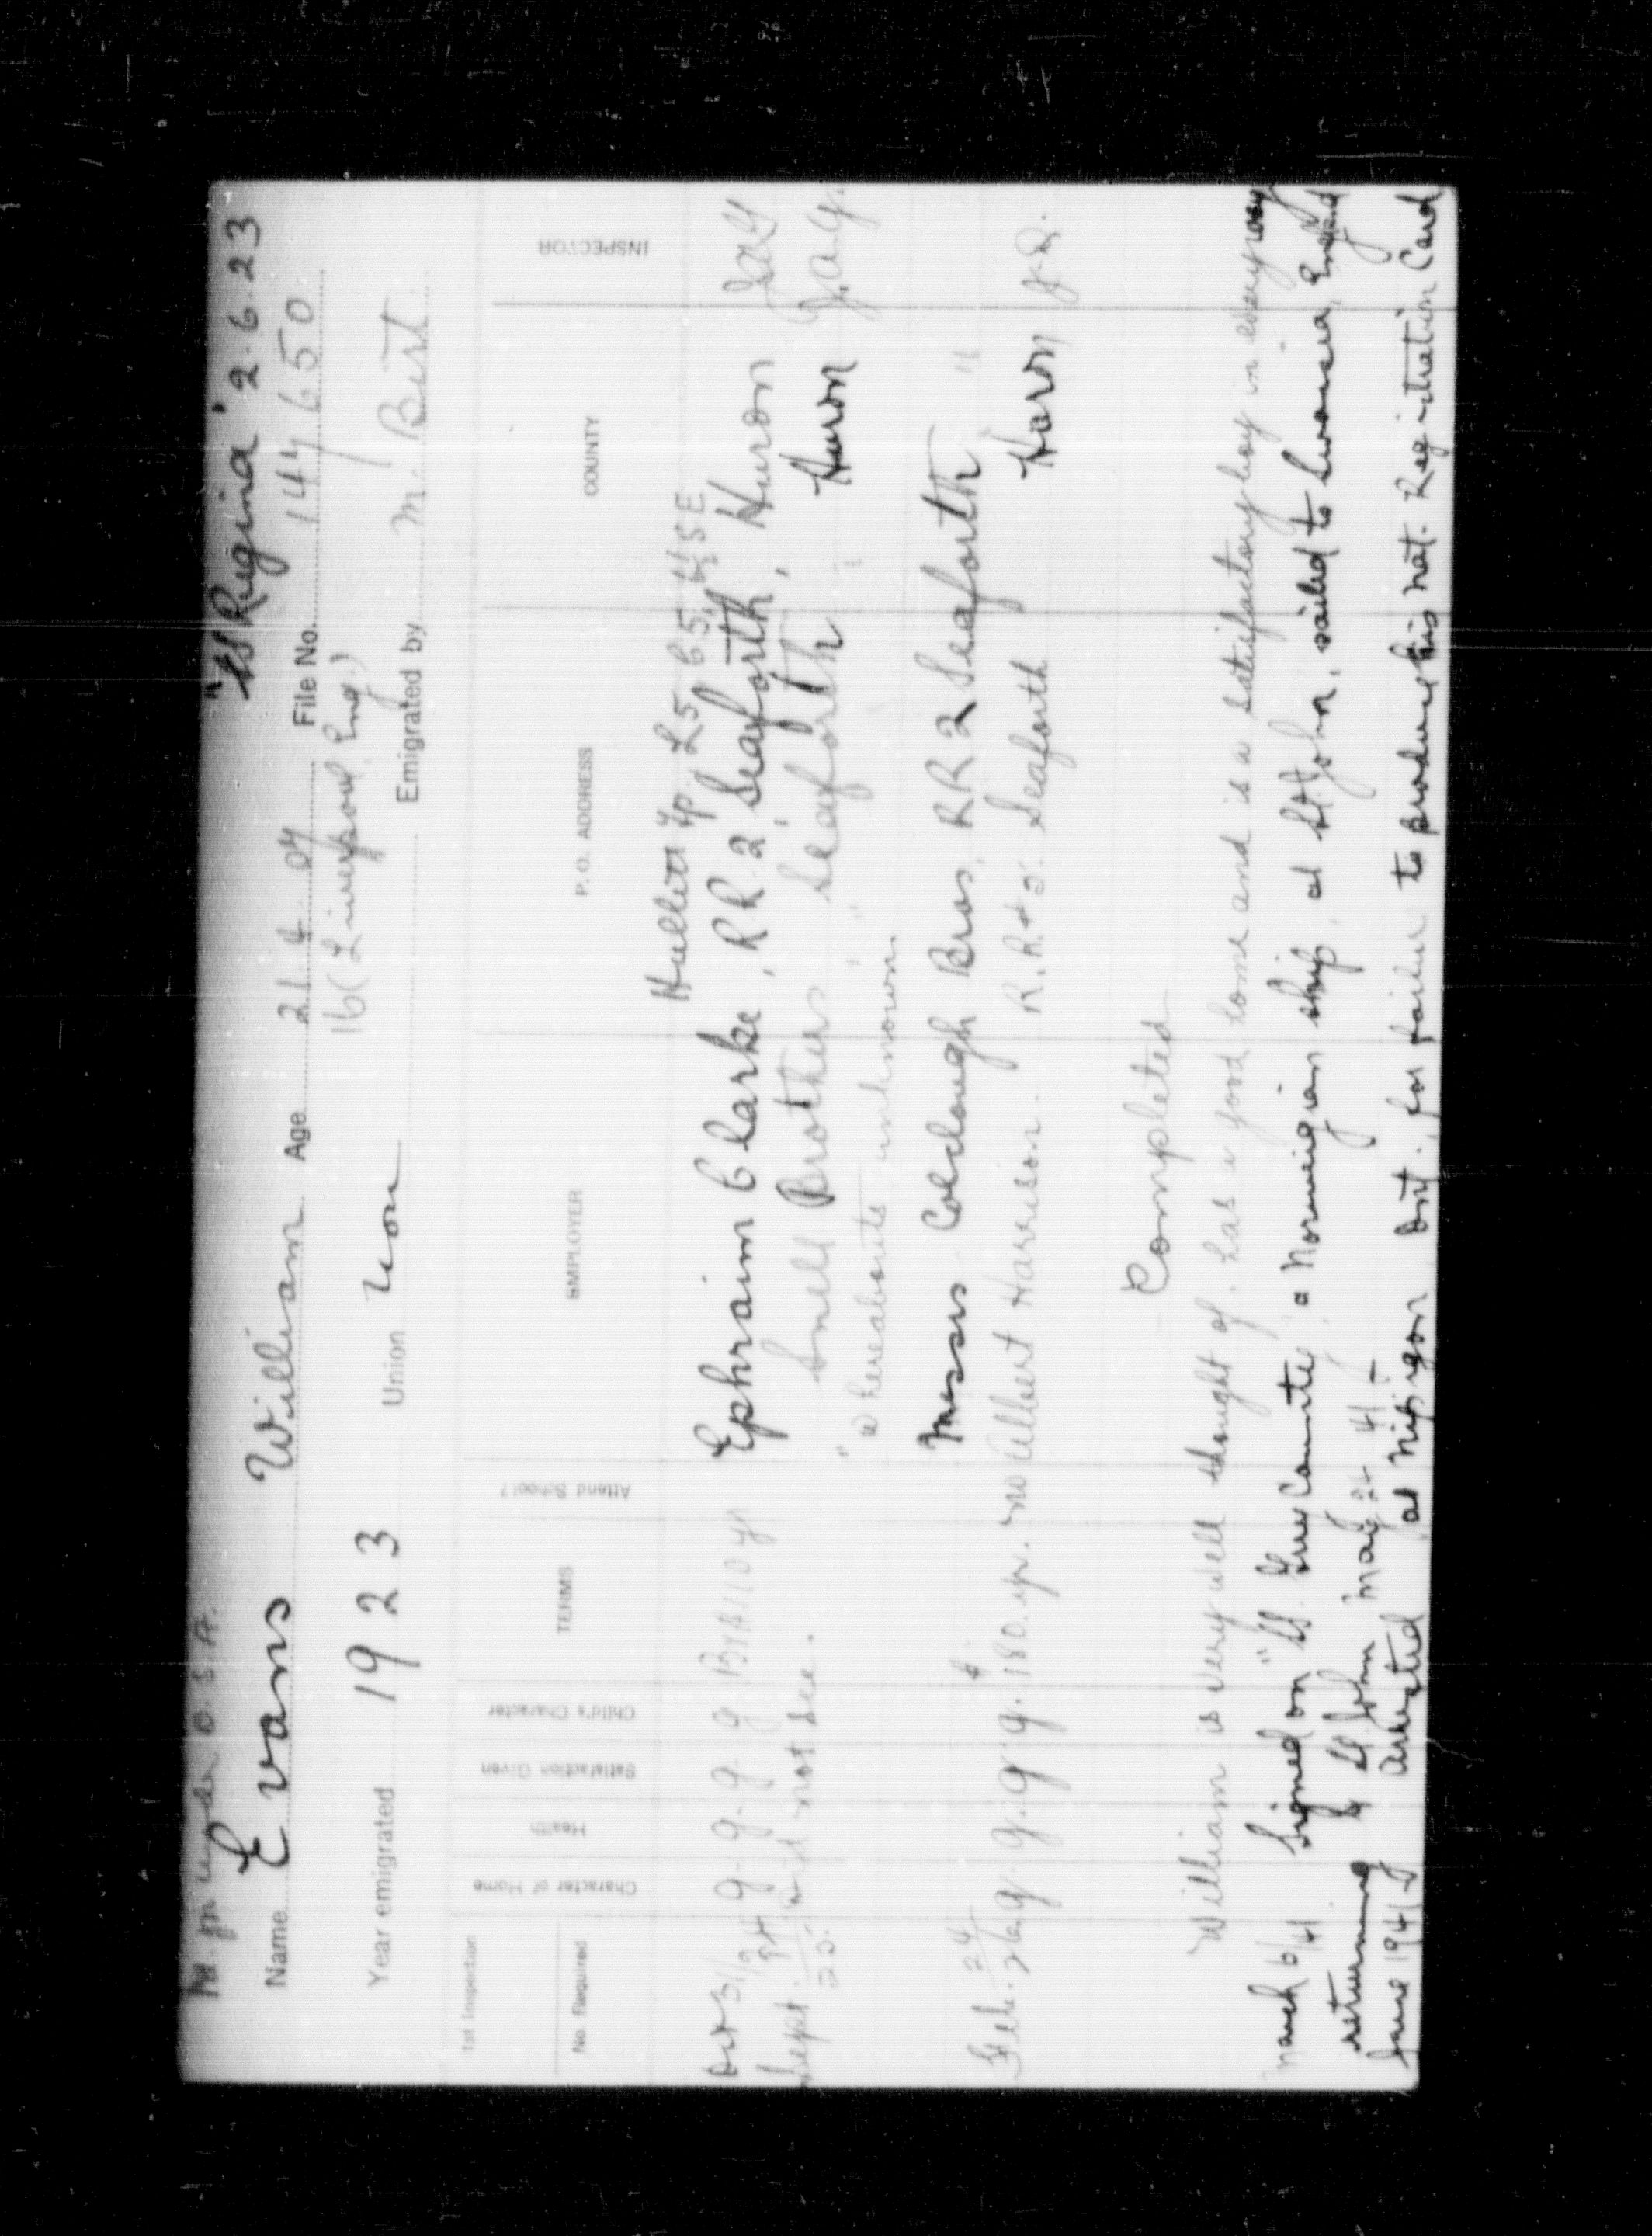 "SS Regina" 2.6.23
Name Evans William Age 21.4.07 File No. 144650
16 (Liverpool Eng.)
Year emigrated 1923 Union Emigrated by M. Bert.
1st Inspection
No. Required Character of Home Health Satisfaction Given Child's Character TERMS Attend School? EMPLOYER P.O. ADDRESS COUNTY INSPECTOR
Hullett Tp. L5 C5
Oct 31/ g. g. g. g yr Ephraim Clarke, RR 2, Seaforth, Huron
Sept. 25. did not see. Smell Brothers Seaforth Huron
"whereabouts unknown.
Messrs. Colclough Bros. RR 2 Seaforth "
Feb. 24/26 g. g. g. g. $180. yr. no Albert Harrison. R.R.#2. Seaforth Huron
Completed
William is very well thought of. has a good home and is a satisfactory boy in every way
March 6/41 Signed on "SS. Grey County", a Norweigian ship, at St. John, sailed to Swansea, England
returning to St John May 24 41
June 1941 Arrested at Nipigon Ont. for failure to produce his Nat. Registration Card